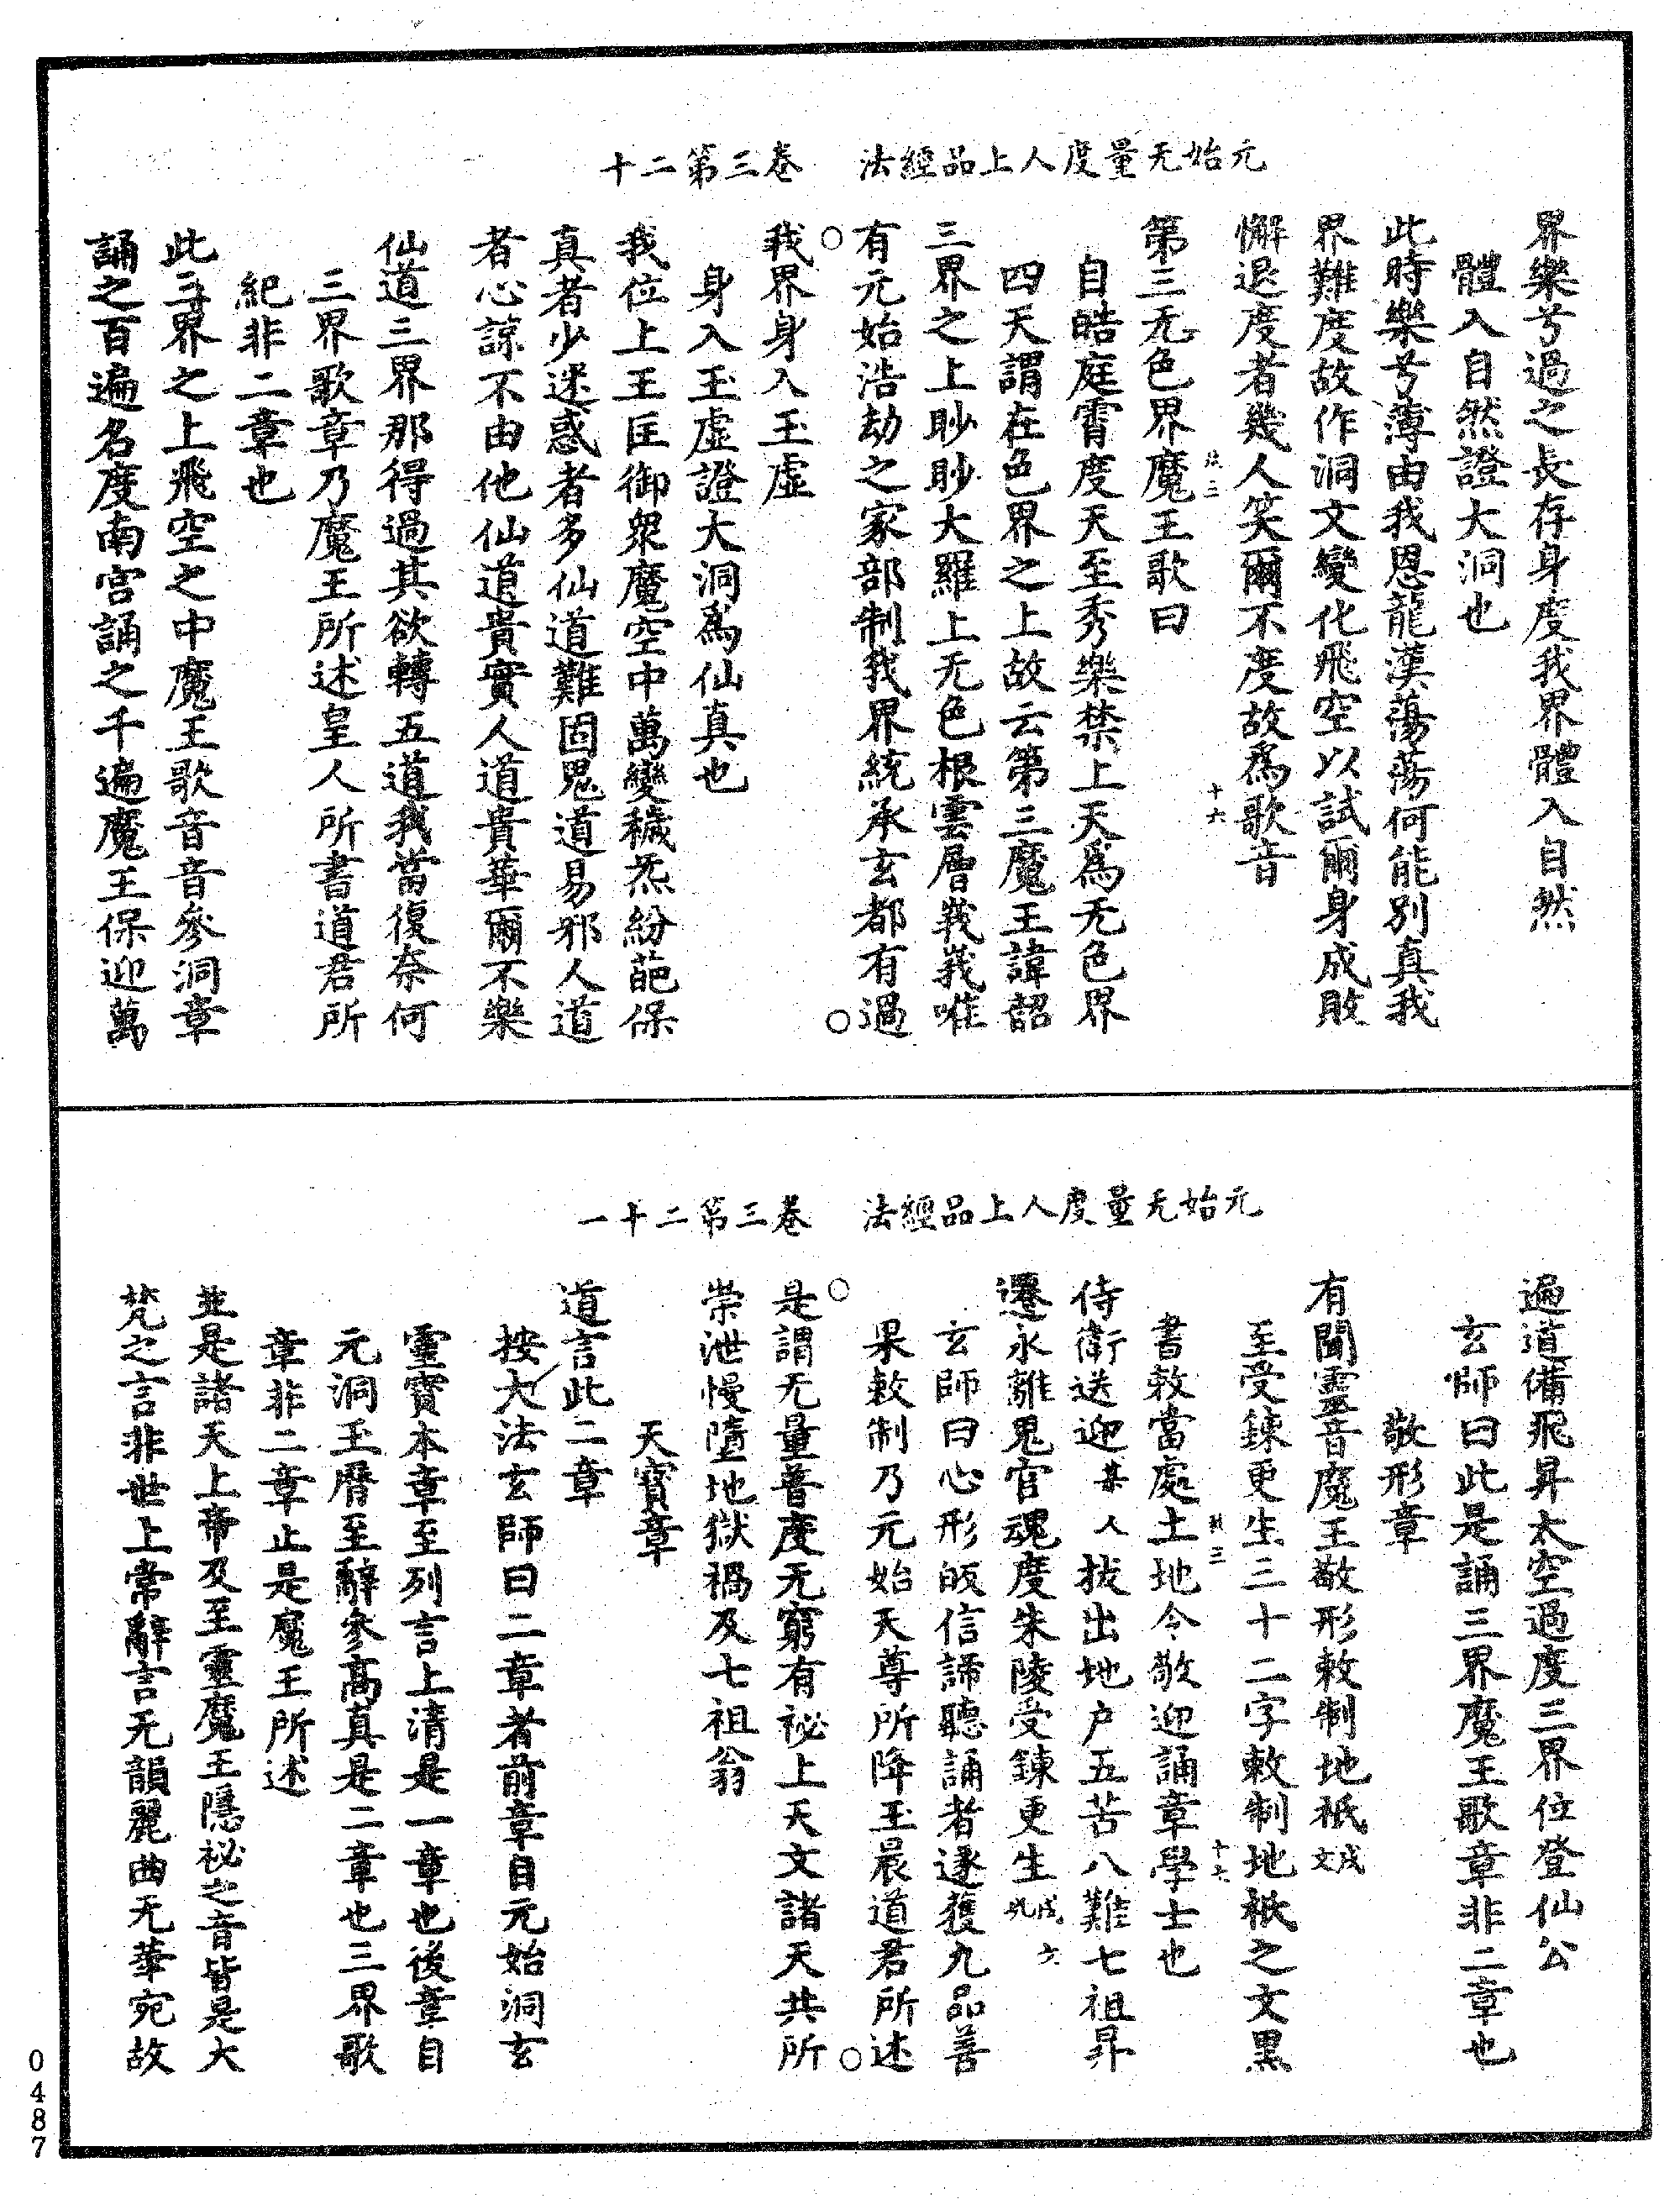 元始无量度人上品經法　卷三第二十
界樂兮過之長存身度我界體入自然
體入自然證大洞也
此時樂兮薄由我恩龍漢蕩蕩何能別真我
界難度故作洞文變化飛空以試爾身成敗
懈退度者幾人笑爾不度故爲歌音
第三无色界魔王歌曰
自皓庭霄度天至秀樂禁上天爲无色界
四天謂在色界之上故云第三魔王諱韶
三界之上眇眇大羅上无色根雲層峩峩唯
有元始浩劫之家部制我界統承玄都有過
我界身入玉虛
身入玉虛證大洞爲仙真也
我位上王匡御衆魔空中萬變穢炁紛葩保
真者少迷惑者多仙道難固鬼道易邪人道
者心諒不由他仙道貴實人道貴華爾不樂
仙道三界那得過其欲轉五道我當復奈何
三界歌章乃魔王所述皇人所書道君所
紀非二章也
此三界之上飛空之中魔王歌音音參洞章
誦之百遍名度南宫誦之千遍魔王保迎萬
元始无量度人上品經法　卷三第二十一
遍道備飛昇太空過度三界位登仙公
玄師曰此是誦三界魔王歌章非二章也
敬形章
有聞靈音魔王敬形敕制地衹戌文
至受鍊更生三十二字敕制地衹之文黑
書敕當處土地令敬迎誦章學士也
侍衛送迎某人拔出地户五苦八難七祖昇
遷永離鬼官魂度朱陵受鍊更生
玄師曰心形皈信諦聽誦者遂獲九品善
果敕制乃元始天尊所降玉晨道君所述
是謂无量普度无窮有祕上天文諸天共所
崇泄慢墮地獄禍及七祖翁
天寳章
道言此二章
按大法玄師曰二章者前章自元始洞玄
靈寳本章至列言上清是一章也後章自
元洞玉曆至辭參高真是二章也三界歌
章非二章止是魔王所述
並是諸天上帝及至靈魔王隱祕之音皆是大
梵之言非世上常辭言无韻麗曲无華宛故
0487